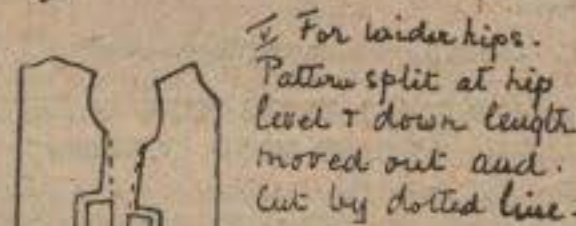 V For wider hips.
Pattern split at hip
level & down length
moved out and.
Cut by dotted line.